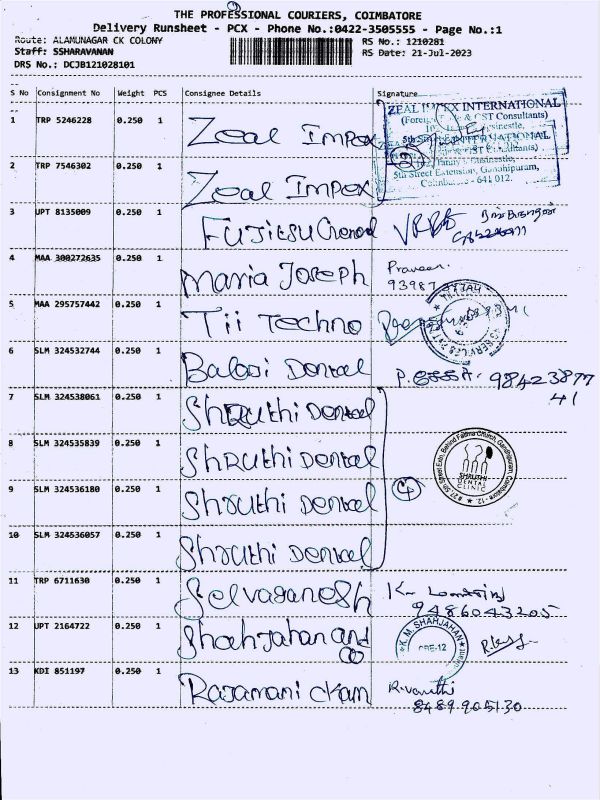 THE PROFESSIONAL COURIERS, COIMBATORE
Delivery Runsheet - PCX - Phone No.:0422-3505555 - Page No.:1
Route: ALAMUNAGAR CK COLONY
RS No.: 1210281
Staff: SSHARAVANAN
RS Date: 21-Jul-2023
DRS No.: DCJB121028101
S No Consignment No Weight PCS Consignee Details Signature
1 TRP 5246228 0.250 1 Zeal Impex
ZEAL IMPEX INTERNATIONAL
& GST Consultants)
5th Street Extension, Ganahipuram,
Coimbatore - 641 012.
2 TRP 7546302 0.250 1 Zeal Impex
2
3 UPT 8135009 0.250 1 Fujitsu General
4 MAA 300272635 0.250 1 Maria Joseph Praveen.
93987
5 MAA 295757442 0.250 1 Tii Techno
6 SLM 324532744 0.250 1 Balaji Dental 98423877
41
7 SLM 324538061 0.250 1 Shruthi Dental
8 SLM 324535839 0.250 1 Shruthi Dental
9 SLM 324536180 0.250 1 Shruthi Dental
4
# 27, 5th Street Extn, Behind Fatima Church, Gandhipuram, Coimbatore - 12.
SHRUTHI
DENTAL
CLINIC
10 SLM 324536057 0.250 1 Shruthi Dental
11 TRP 6711630 0.250 1 Selvaganesh
9486043205
12 UPT 2164722 0.250 1 Shahjahan and
co
K.M. SHAHJAHAN
CBE-12
13 KDI 851197 0.250 1 Rajamani ckam R.vanathi
8489905130